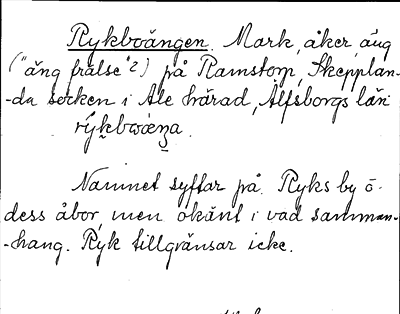 Rykboängen. Mark, åker, äng
("äng frälse" 2) på Ramstorp, Skepplan-
-da socken i Ale härad, Älfsborgs län
rýkbwæŋa.
Namnet syftar på Ryks by o.
dess åbor, men okänt i vad samman-
-hang. Ryk tillgränsar icke.